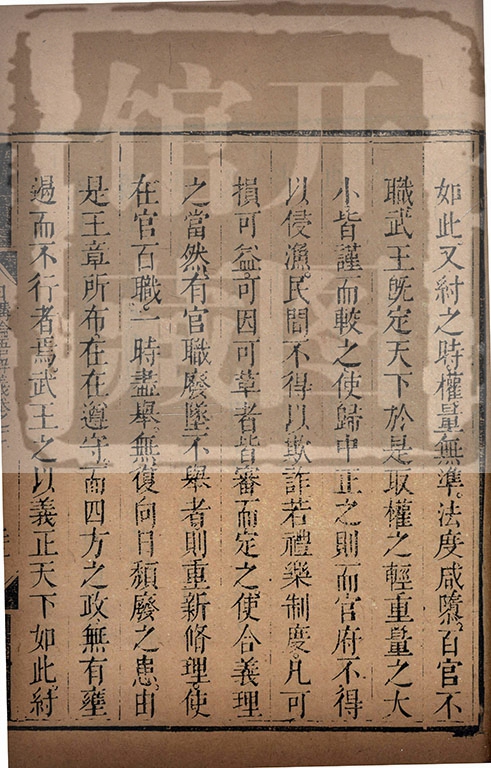 如此又紂之時權量無準法度咸隳百官不
職武王旣定天下於是取權之輕重量之大
小皆謹而較之使歸中正之則而官府不得
以侵漁民間不得以欺詐若禮樂制度凡可
損可益可因可革者皆審而定之使合義理
之當然有官職廢墜不舉者則重新脩理使
在官百職一時盡舉無復向日頹廢之患由
是王章所布在在遵守而四方之政無有壅
遏而不行者焉武王之以義正天下如此紂